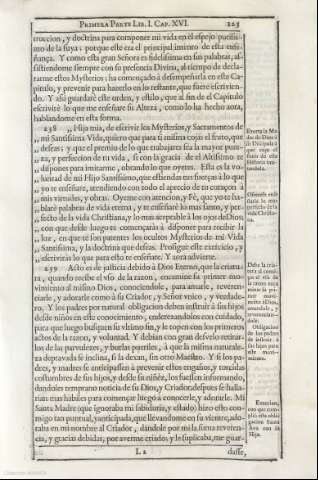 PRIMERA PARTE LIB. I. CAP. XVI. 123
truccion, y doctrina para componer mi vida en el espejo purissi-
mo de la suya: porque este era el principal intento de esta ense-
ñança. Y como esta gran Señora es fidelissima en sus palabras, as-
sistiendome siempre con su presencia Divina, al tiempo de decla-
rarme estos Mysterios: ha començado à desempeñarla en este Ca-
pitulo, y prevenir para hazerlo en lo restante, que fuere escrivien-
do. Y assi guardarè este orden, y estilo, que al fin de el Capitulo
escrivirè lo que me enseñare su Alteza, como lo ha hecho aora,
hablandome en esta forma.
238 ,, Hija mia, de escrivir los Mysterios, y Sacramentos de
,, mi Santissima Vida, quiero que para ti misma cojas el fruto, que
,, deseas; y que el premio de lo que trabajares sea la mayor pure-
,, za, y perfeccion de tu vida, si con la gracia de el Altissimo te
,, dispones para imitarme, obrando lo que oyeres. Esta es la vo-
,, luntad de mi Hijo Santissimo, que estiendas tus fuerças à lo que
,, yo te enseñare, atendiendo con todo el aprecio de tu coraçon à
,, mis virtudes, y obras. Oyeme con atencion, y Fè, que yo te ha-
,, blarè palabras de vida eterna, y te enseñarè lo mas santo, y per-
,, fecto de la vida Christiana, y lo mas aceptable à los ojos de Dios
,, con que desde luego te començaràs à disponer para recibir la
,, luz, en que te son patentes los ocultos Mysterios de mi Vida
,, Santissima, y la doctrina que deseas. Prosigue este exercicio, y
,, escrivirás lo que para esto te enseñare. Y aora advierte.
239 Acto es de justicia debido à Dios Eterno, que la criatu-
ra, quando recibe el vso de la razon, encamine su primer mo-
vimiento al mismo Dios, conociendole, para amarle, reveren-
ciarle, y adorarle como à su Criador, y Señor vnico, y verdade-
ro. Y los padres por natural obligacion deben instruir à sus hijos
desde niños en este conocimiento, endereçandolos con cuidado,
para que luego busquen su vltimo fin, y le topen con los primeros
actos de la razon, y voluntad. Y debian con gran desvelo retirar-
los de las puerilezes, y burlas pueriles, à que la misma naturale-
za depravada se inclina, si la dexan, sin otro Maestro. Y si los pa-
dres, y madres se anticipassen à prevenir estos engaños, y torcidas
costumbres de sus hijos, y desde su niñez, los fuessen informando,
dandoles temprano noticia de su Dios, y Criador, despues se halla-
rian mas habiles para començar luego à conocerle, y adorarle. Mi
Santa Madre (que ignoraba mi sabiduria, y estado) hizo esto con-
migo tan puntual, y anticipada, que llevandome en su vientre, ado-
raba en mi nombre al Criador, dandole por mi la suma reveren-
cia, y gracias debidas, por averme criado; y le suplicaba, me guar-
L 2 dasse,
Exorta la Ma-
dre de Dios à
su Discipula à
que coja el
fruto de esta
Historia
Debe la cria-
tura al
Obligacion
de los padres